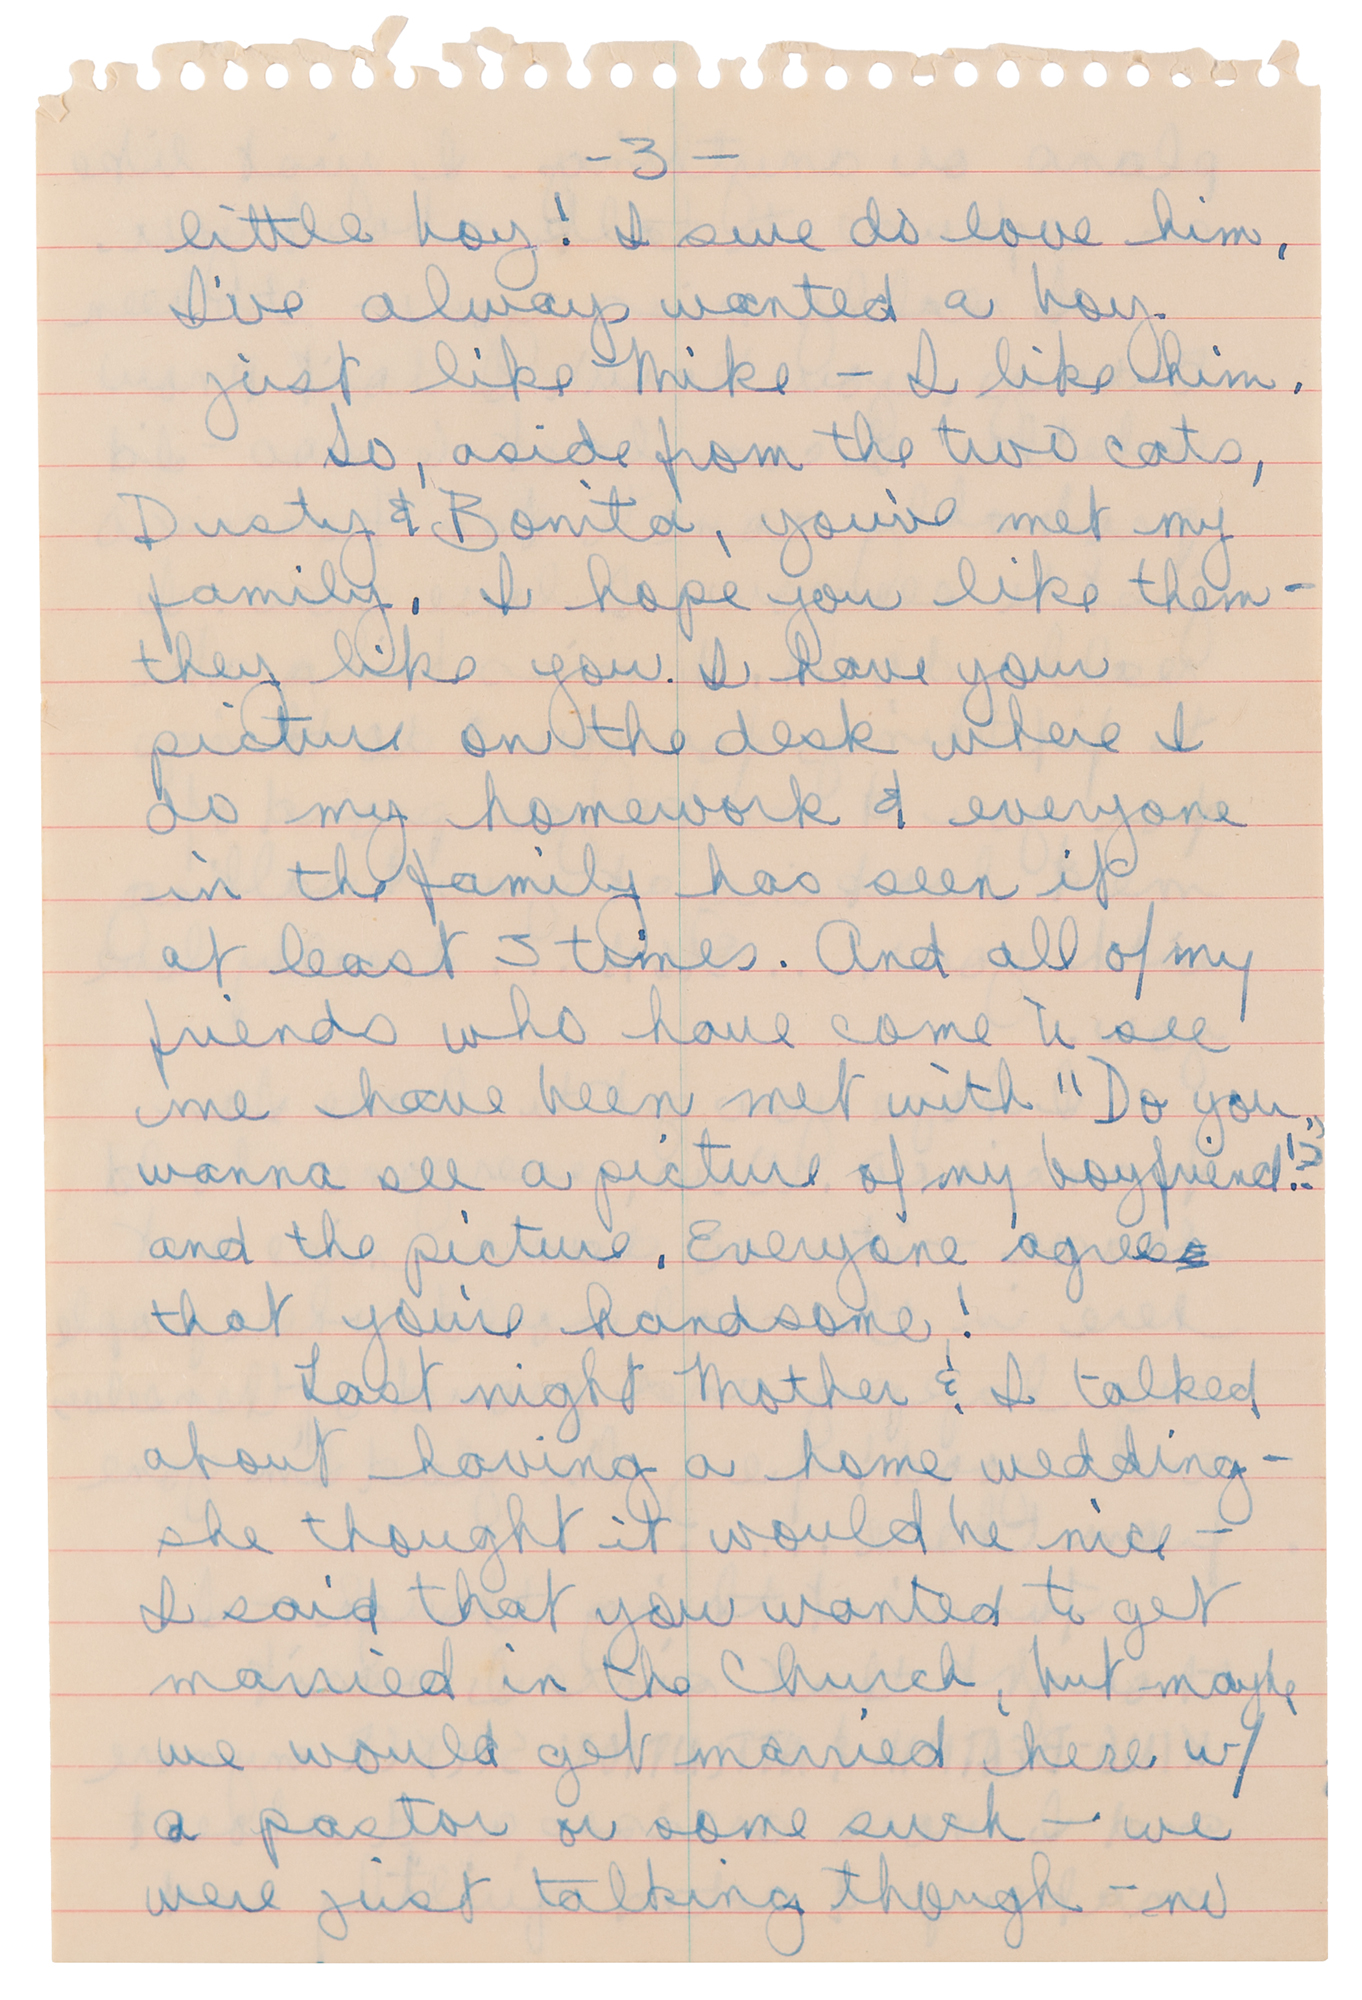 -3-
little boy! I sure do love him,
I've always wanted a boy.
just like Mike - I like him.
So, aside from the two cats,
Dusty & Bonita, you've met my
family. I hope you like them-
they like you. I have your
picture on the desk where I
do my homework & everyone
in the family has seen it
at least 5 times. And all of my
friends who have come to see
me have been met with "Do you
wanna see a picture of my boyfriend!?"
and the picture. Everyone agrees
that you're handsome!
Last night Mother & I talked
about having a home wedding-
she thought it would be nice-
I said that you wanted to get
married in the Church, but maybe
we would get married here w/
a pastor or some such - we
were just talking though - no